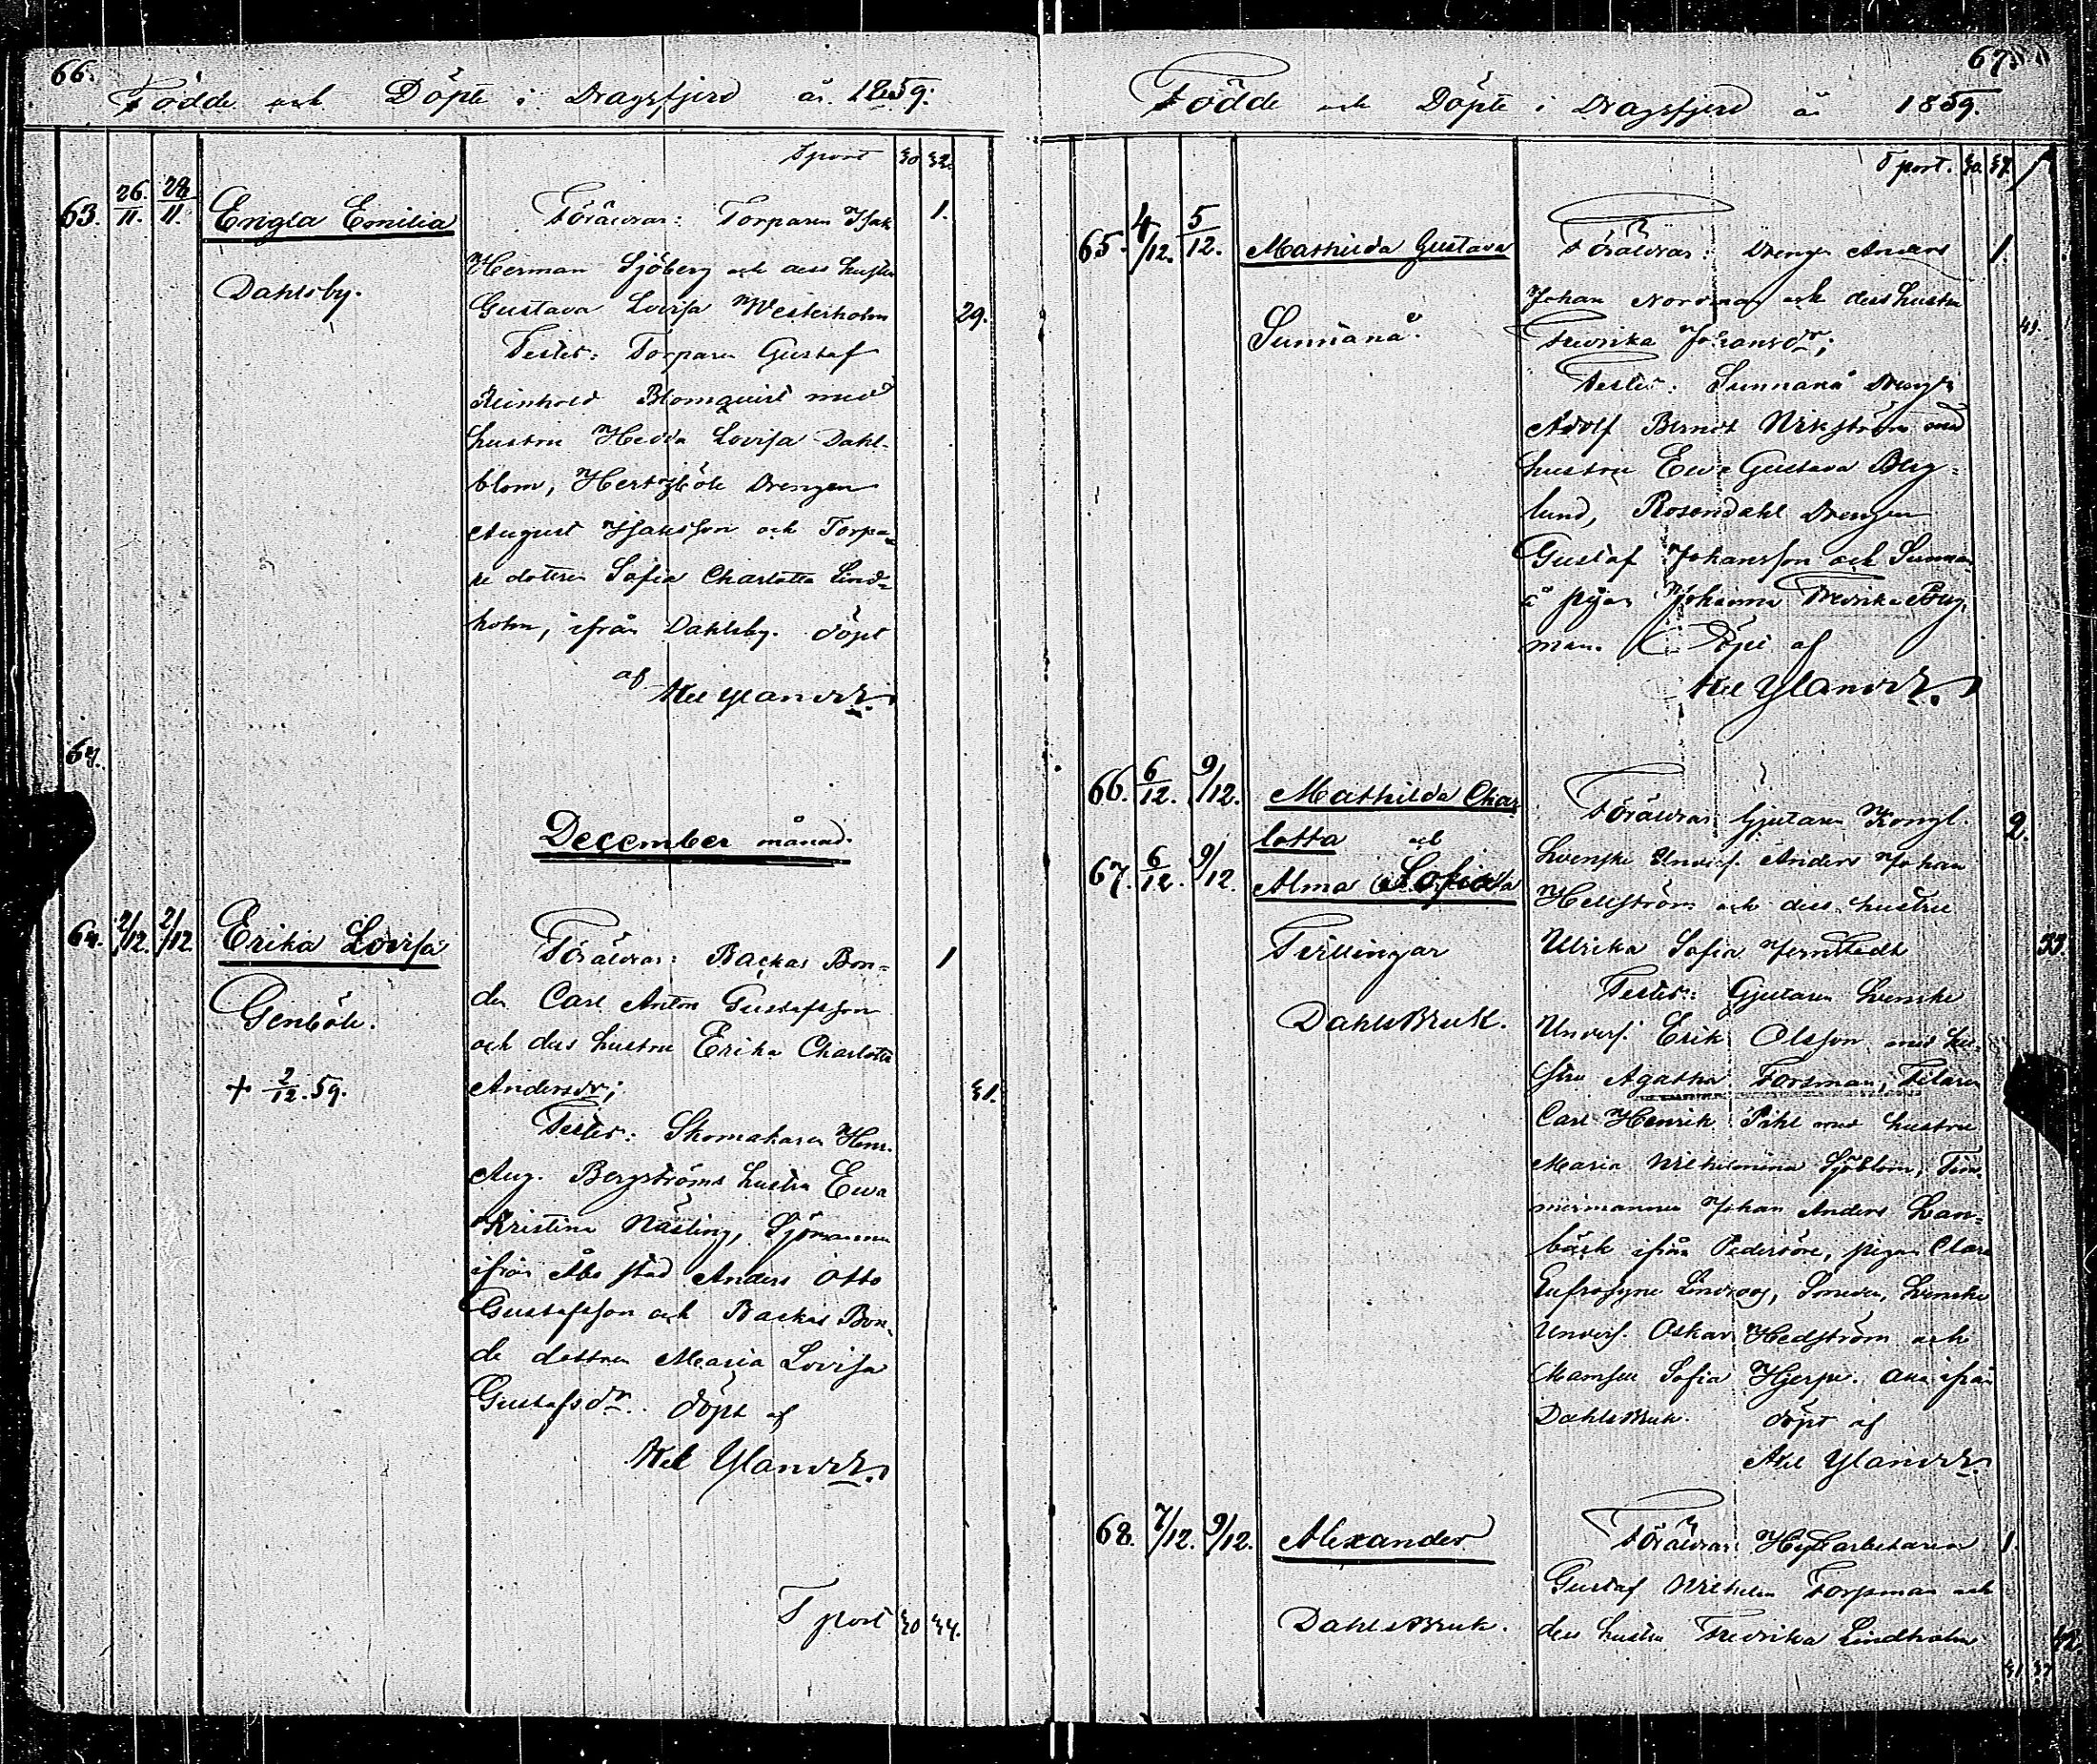 66.
Födde och Döpte i Dragsfjerd år 1859.
Tport 30 32.
63. 26/11. 28/11. Engla Emilia
Dahlsby.
Föräldrar: Torparen Isak 1.
Herman Sjöberg och dess hustru
Gustava Lovisa Westerholm 29.
Testes: Torparen Gustaf
Reinhold Blomquist med
hustru Hedda Lovisa Dahl-
blom, Hertsböle Drengen
August Isaksson och Torpa-
re dottren Sofia Charlotta Lind-
holm, ifrån Dahlsby. döpt
af Axel Ylander.
64.
December månad.
64. 2/12. 2/12. Erika Lovisa
Genböle.
+ 2/12. 59.
Föräldrar: Backas Bon- 1
den Carl Anton Gustafsson
och dess hustru Erika Charlotta
Andersdr; 31.
Testes: Skomakaren Henr.
Aug. Bergströms hustru Ewa
Kristina Näsling, Sjömannen
ifrån Åbo stad Anders Otto
Gustafsson och Backas Bon-
de dottren Maria Lovisa
Gustafsdr. döpt af
Axel Ylander.
T port 30 34.
67.
Födde och Döpte i Dragsfjerd år 1859.
T port. 30. 34.
65. 4/12. 5/12. Mathilda Gustava
Sunnanå.
Föräldrar: Drengen Anders 1.
Johan Nordman och dess hustru
Fredrika Johansdr;
Testes: Sunnanå Drengen
Adolf Berndt Wikström med
hustru Ewa Gustava Berg-
lund, Rosendahl Drengen
Gustaf Johansson och Sunnan-
å pigan Johanna Fredrika Berg-
man. Döpt af
Axel Ylander.
66. 6/12. 9/12. Mathilda Char
lotta och
67. 6/12. 9/12. Alma Sofia
Tvillingar
DahlsBruk.
Föräldrar Gjutaren Kongl. 2.
Svenske Unders. Anders Johan
Hellström och dess hustru
Ulrika Sofia Jernstedt 33.
Testes: Gjutaren Svenske
Unders. Erik Olsson med hu-
stru Agatha Forsman, Filaren
Carl Henrik Pihl med hustru
Maria Wilhelmina Sjöblom, Tim-
mermannen Johan Anders
bäck ifrån Pedersöre, pigan Clara
Eufrosyne Lindroos, Smeden, Svenske
Unders. Oskar Hedström och
Mamsell Sofia Hjerpe. alla ifrån
DahlsBruk. döpt af
Axel Ylander.
68. 7/12. 9/12. Alexander
DahlsBruk.
Föräldrar Hyttarbetaren 1.
Gustaf Wilhelm Forsman och
dess hustru Fredrika Lindholm
31 37